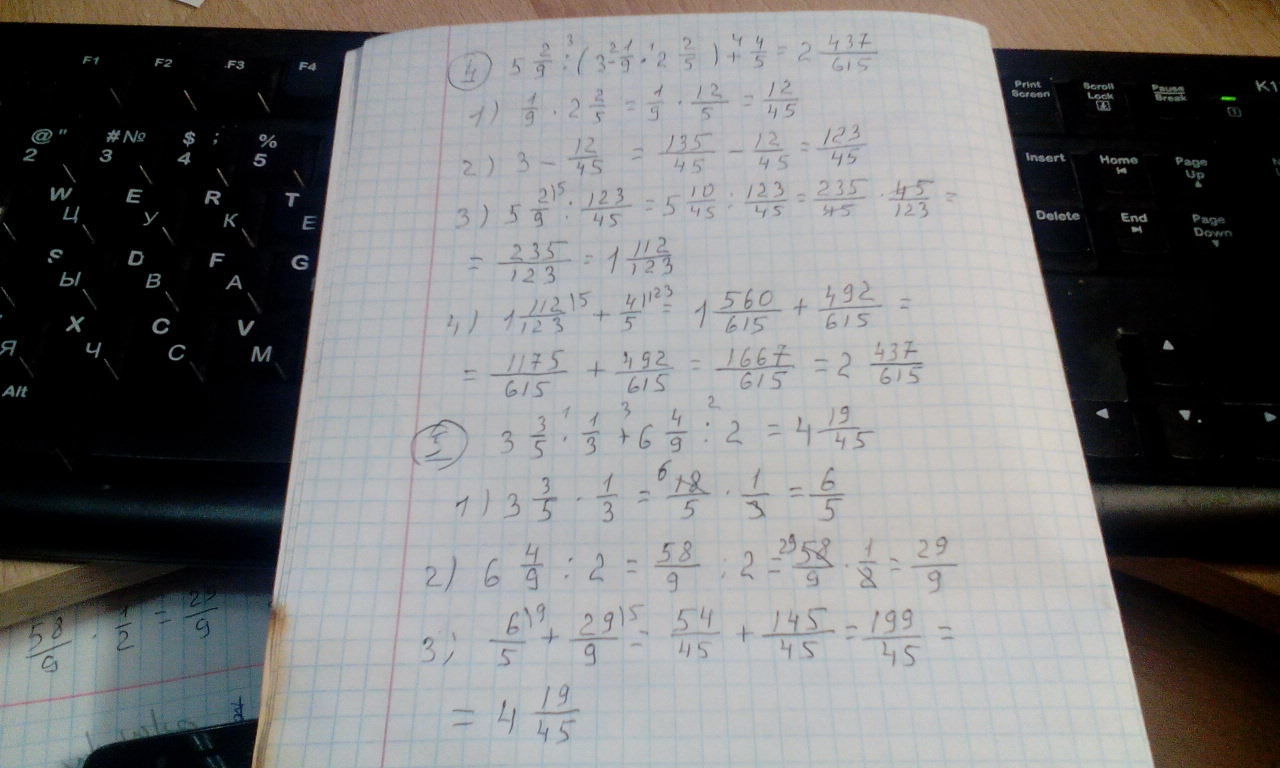 F1 F2 F3 F4
@ " 2 # № 3 $ ; 4 % 5
W Ц E У R К T Е
S Ы D В F А G
X Ч C С V М
Я
Alt
Print Screen Scroll Lock Pause Break
Insert Home Page Up
Delete End Page Down
4 5 2/9 :³ (3 -² 1/9 ·¹ 2 2/5) +⁴ 4/5 = 2 437/615
1) 1/9 · 2 2/5 = 1/9 · 12/5 = 12/45
2) 3 - 12/45 = 135/45 - 12/45 = 123/45
3) 5 2/9 )5 : 123/45 = 5 10/45 : 123/45 = 235/45 · 45/123 =
= 235/123 = 1 112/123
4) 1 112/123 )5 + 4/5 )123 = 1 560/615 + 492/615 =
= 1175/615 + 492/615 = 1667/615 = 2 437/615
5 3 3/5 ·¹ 1/3 +³ 6 4/9 :² 2 = 4 19/45
1) 3 3/5 · 1/3 = 6 18/5 · 1/3 = 6/5
2) 6 4/9 : 2 = 58/9 : 2 = 29 58/9 · 1/2 = 29/9
3) 6/5 )9 + 29/9 )5 = 54/45 + 145/45 = 199/45 =
= 4 19/45
58/9 · 1/2 = 29/9